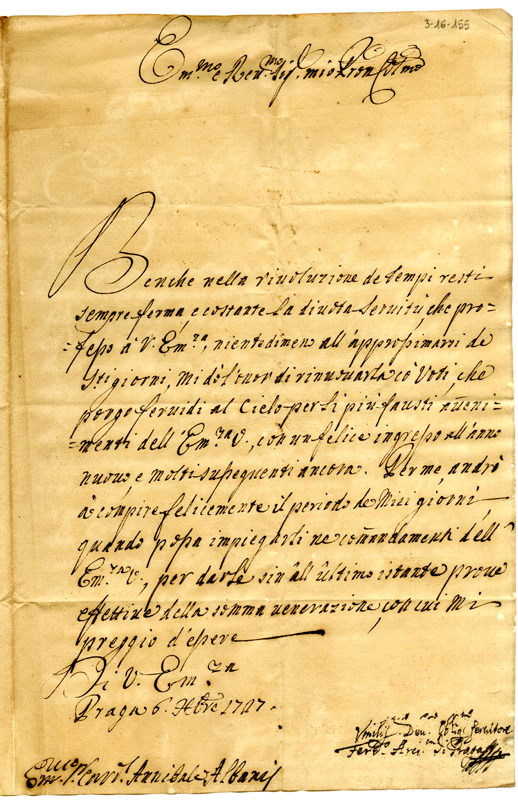 3-16-155
Em.mo e Rev.mo Sig.r mio Pron Col.mo
Benche nella rivoluzione de tempi resti
sempre ferma, e costante la divota servitù che pro=
=fesso à V. Em.za, nientedimeno all'approssimarsi de
sti giorni, mi dò l'onor di rinnuovarla co' Voti, che
porgo fervidi al Cielo per li più fausti avveni=
=menti dell'Em.za V., con un felice ingresso all'anno
nuovo, e molti susseguenti ancora. Per me, andrò
à compire felicemente il periodo de Miei giorni,
quando possa impiegarli ne comandamenti dell'
Em.za V., per darle sin'all'ultimo istante prove
effettive della somma venerazione, con cui mi
preggio d'essere
Di V. Em.za
Praga 6. Xbre 1727.
Umilis. Dev. Oblig. Servitore
Ferd.o Arci. di Praga
Em.mo Sig. Card. Annibale Albani